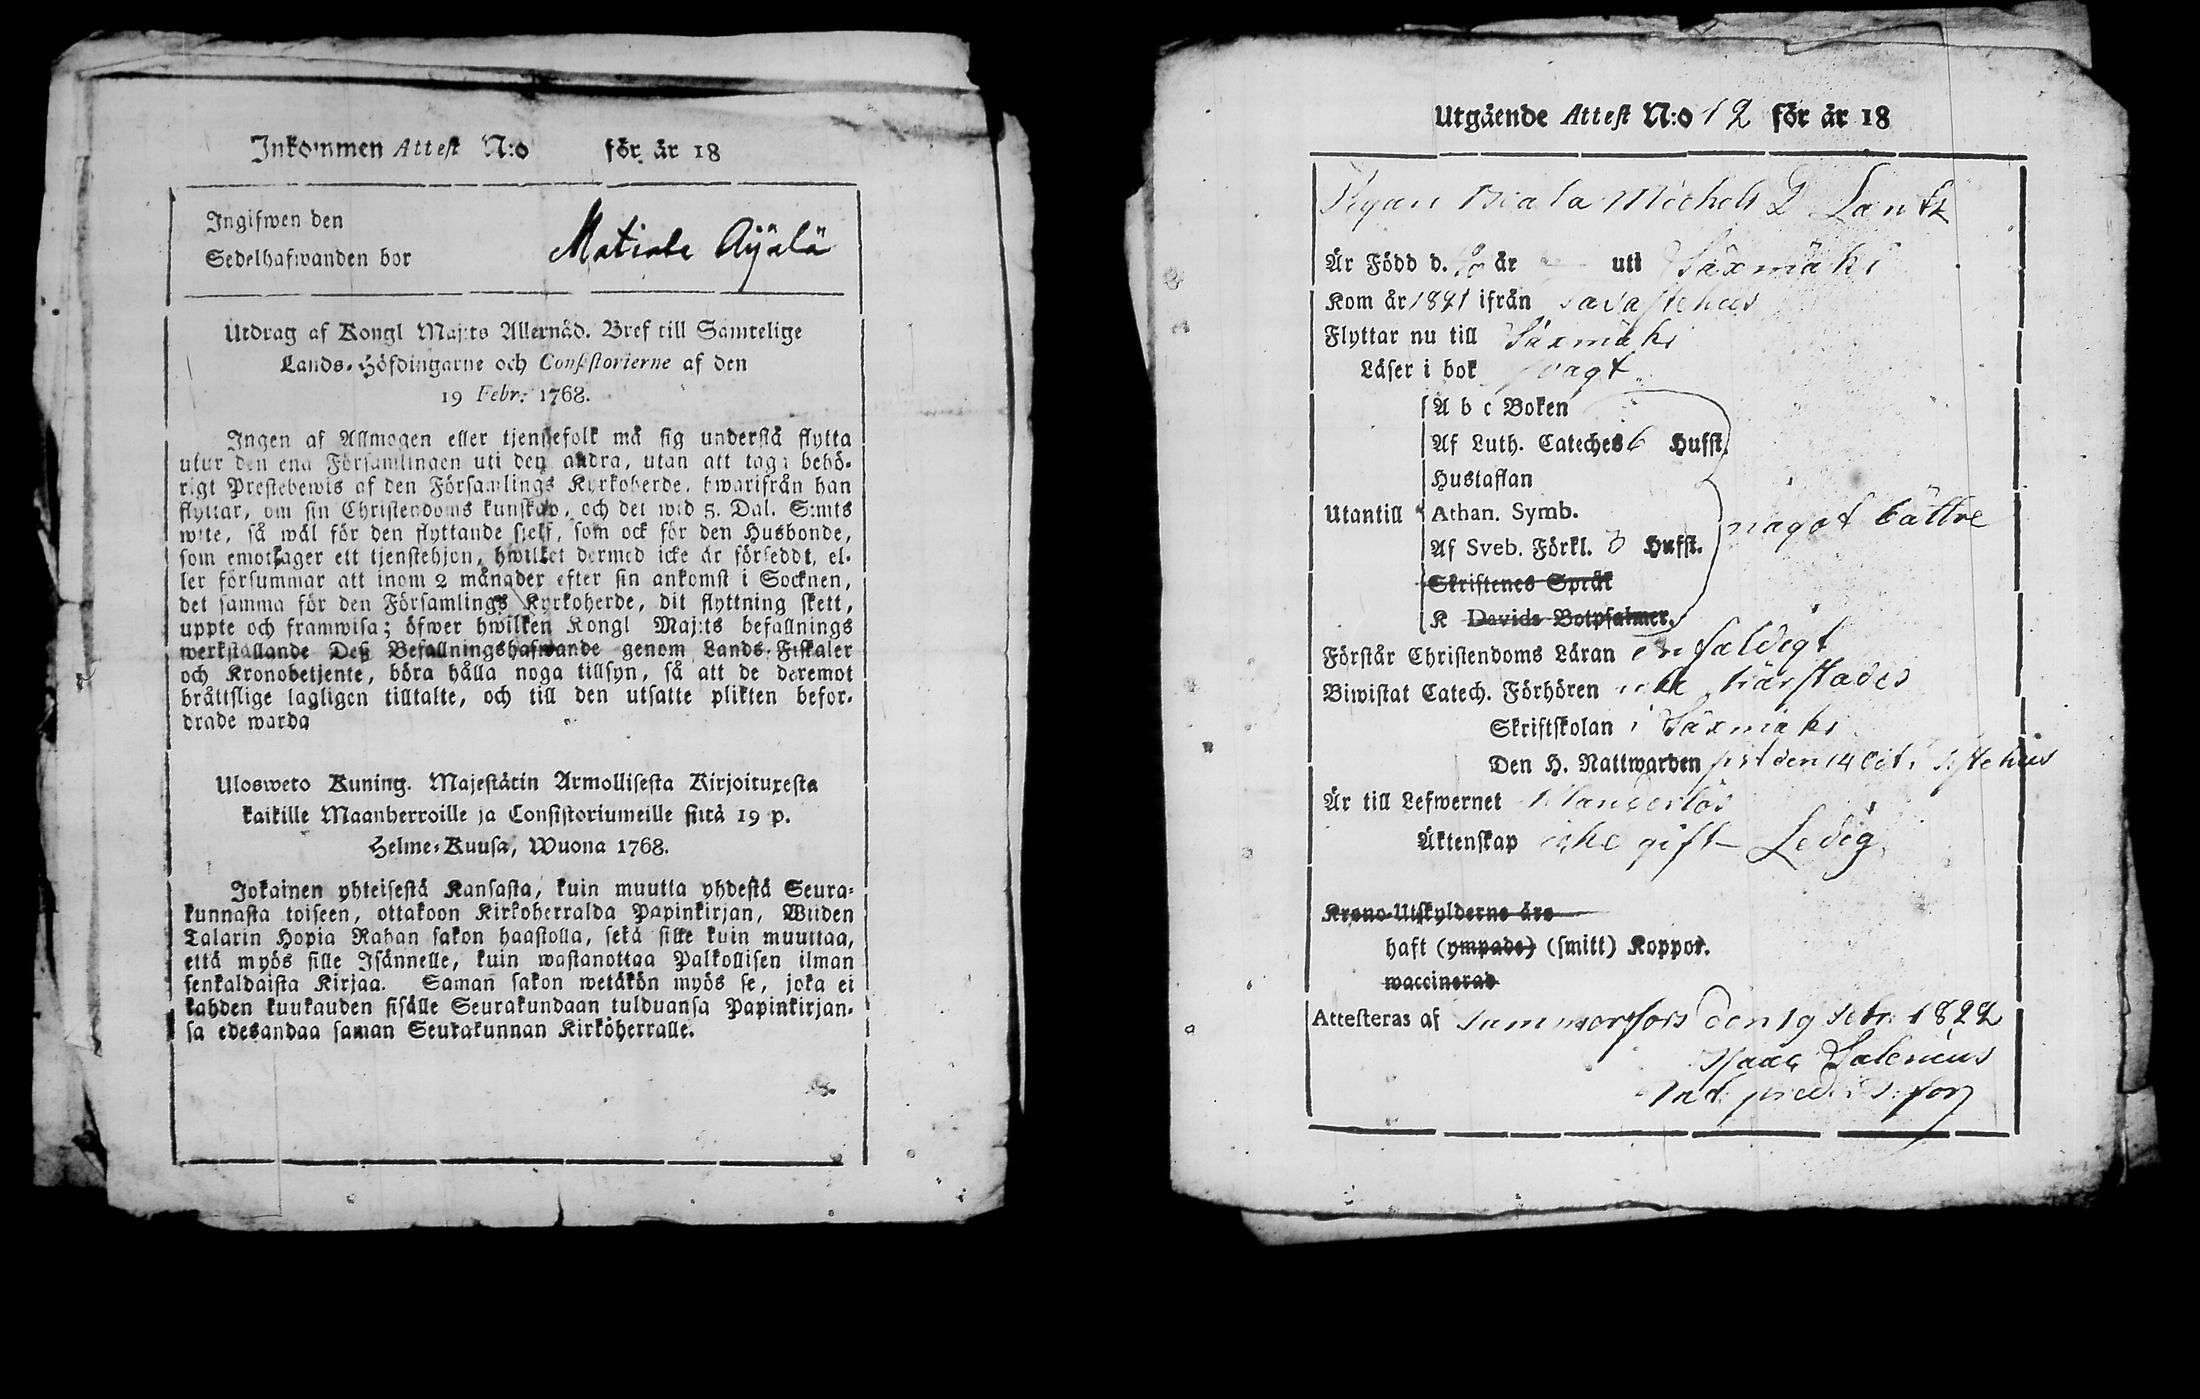 Inkommen Attest N:o för år 18
Ingifwen den
Sedelhafwanden bor Matiala Äÿälä
Utdrag af Kongl Maj:ts Allernåd. Bref till Samtelige
Lands-Höfdingarne och Consistorierne af den
19 Febr. 1768.
Ingen af Allmogen eller tjenstefolk må sig understå flytta
utur den ena Församlingen uti den andra, utan att taga behö-
rigt Prestebewis af den Församlings Kyrkoherde, hwarifrån han
flyttar, om sin Christendoms kunskap, och det wid 5. Dal. S:mts
wite, så wäl för den flyttande sjelf, som ock för den Husbonde,
som emottager ett tjenstehjon, hwilket dermed icke är försedt, el-
ler försummar att inom 2 månader efter sin ankomst i Socknen,
det samma för den Församlings Kyrkoherde, dit flyttning skett,
uppte och framwisa; öfwer hwilken Kongl Maj:ts befallnings
werkställande Deß Befallningshafwande genom Lands-Fiskaler
och Kronobetjente, böra hålla noga tillsyn, så att de deremot
bråttslige lagligen tilltalte, och till den utsatte plikten befor-
drade warda
Ulosweto Kuning. Majestätin Armollisesta Kirjoituxesta
kaikille Maanherroille ja Consistoriumeille siitä 19 p.
Helme-Kuusa, Wuona 1768.
Jokainen yhteisestä Kansasta, kuin muutta yhdestä Seura-
kunnasta toiseen, ottakoon Kirkoherralda Papinkirjan, Wiiden
Talarin Hopia Rahan sakon haastolla, sekä sille kuin muuttaa,
että myös sille Isännelle, kuin wastanottaa Palkollisen ilman
senkaldaista Kirjaa. Saman sakon wetäkön myös se, joka ei
kahden kuukauden sisälle Seurakundaan tulduansa Papinkirjan-
sa edesandaa saman Seurakunnan Kirköherralle.
Utgående Attest N:o 12 för år 18
Pigan Michels D
Är Född d. år uti Säxmäki
Kom år 1821 ifrån Tavastehus
Flyttar nu till Säxmäki
Läser i bok svagt
A b c Boken
Af Luth. Cateches 6 Hufst.
Hustaflan
Utantill Athan. Symb. något bättre
Af Sveb. Förkl. 3 Hufst.
Skriftenes Språk
K Davids Botpsalmer.
Förstår Christendoms Läran enfaldigt
Biwistat Catech. Förhören icke härstädes
Skriftskolan i Säxmäki
Den H. Nattwarden sist den 14 Oct. i T:stehus
Är till Lefwernet klanderlös
Äktenskap icke gift Ledig
Krono-Utskylderne äro
haft (ympade) (smitt) Koppor.
waccinerad
Attesteras af Tammerfors den 19 1822
Isaac Salenius